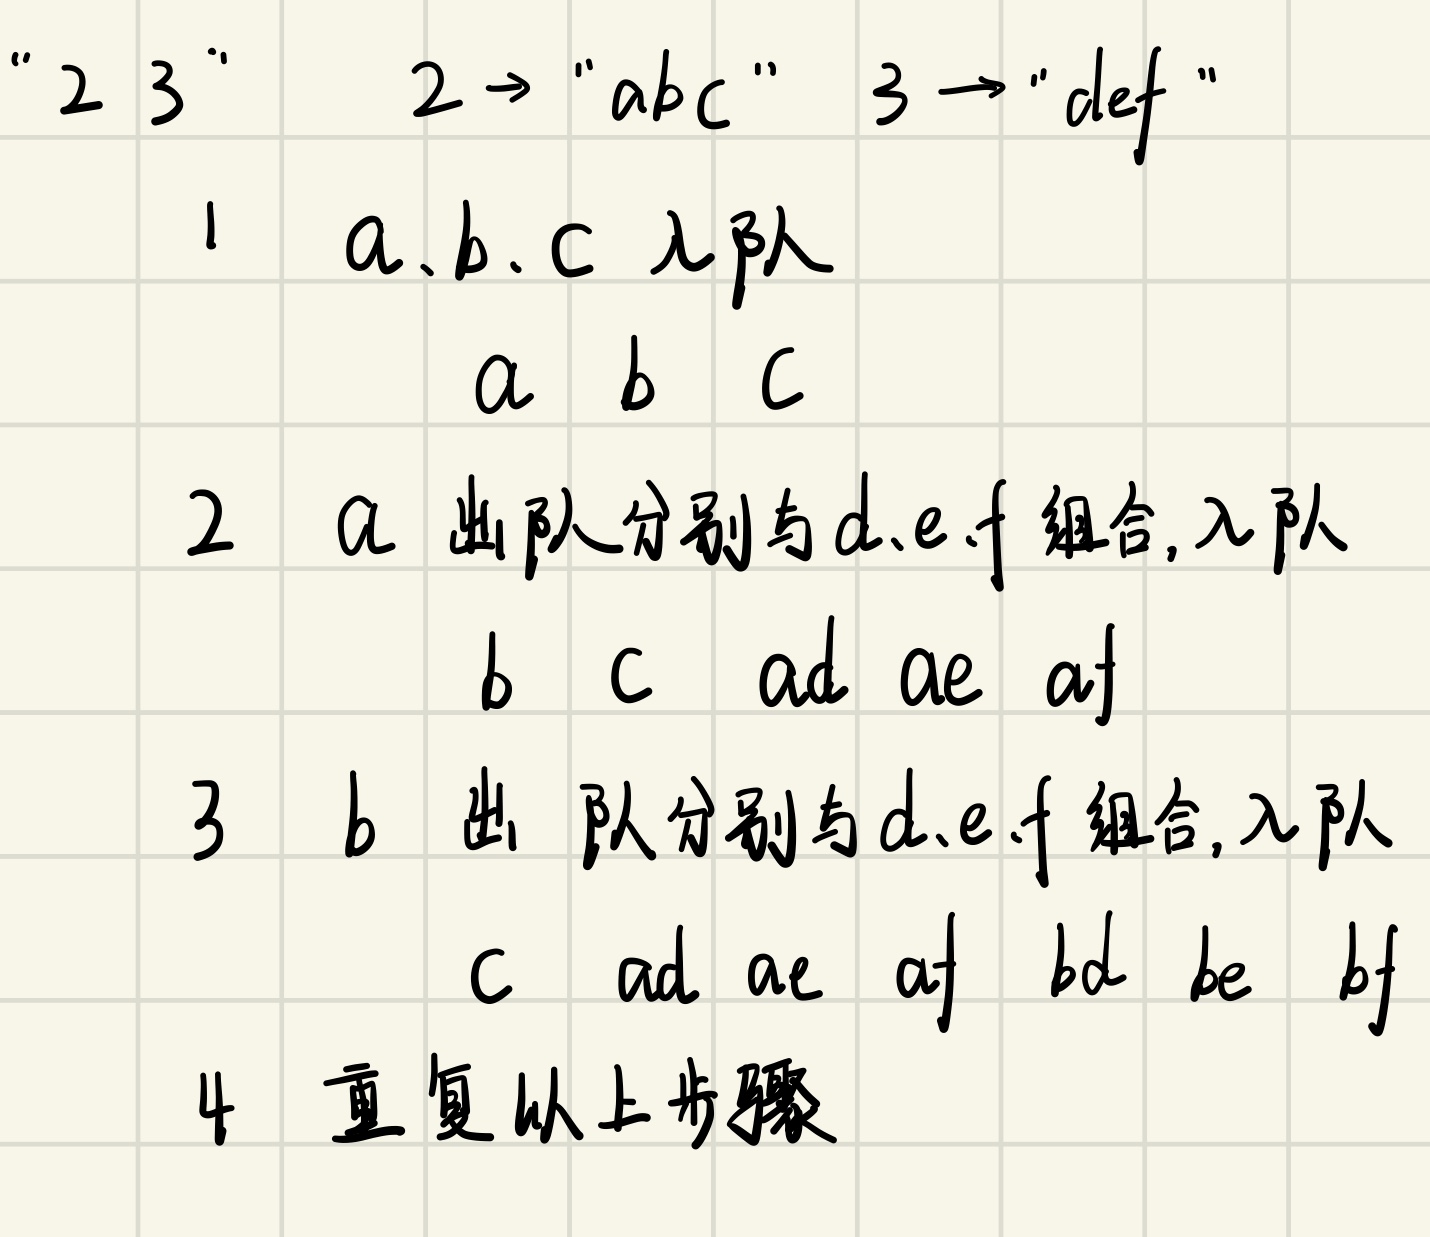 "23" 2→"abc" 3→"def"
1 a、b、c 入队
a b c
2 a 出队分别与d、e、f组合,入队
b c ad ae af
3 b 出 队分别与d、e、f组合,入队
c ad ae af bd be bf
4 重复以上步骤